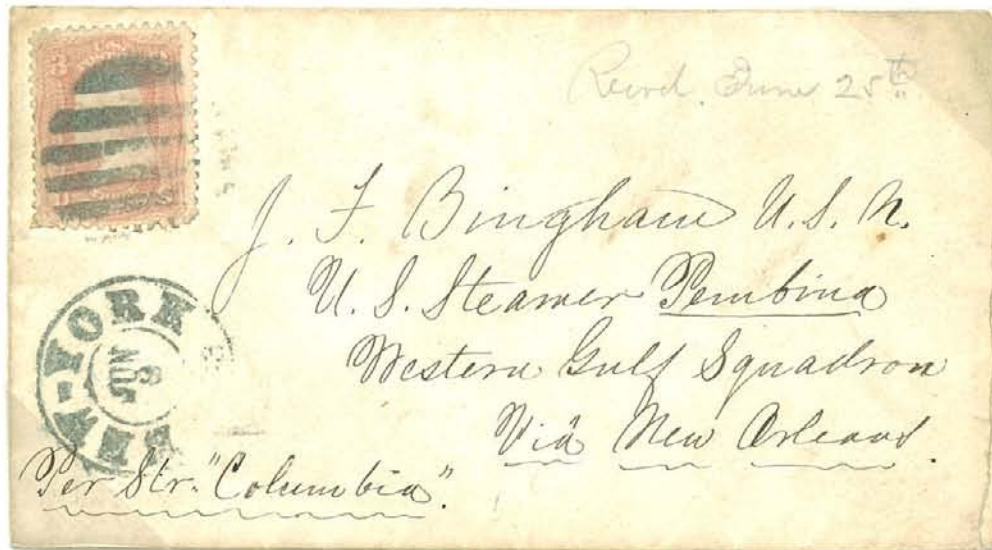 Recvd. June 25th
J. F. Bingham U.S.N.
U. S. Steamer Pembina
Western Gulf Squadron
Via New Orleans.
NEW-YORK
JUN
Per Str. "Columbia".